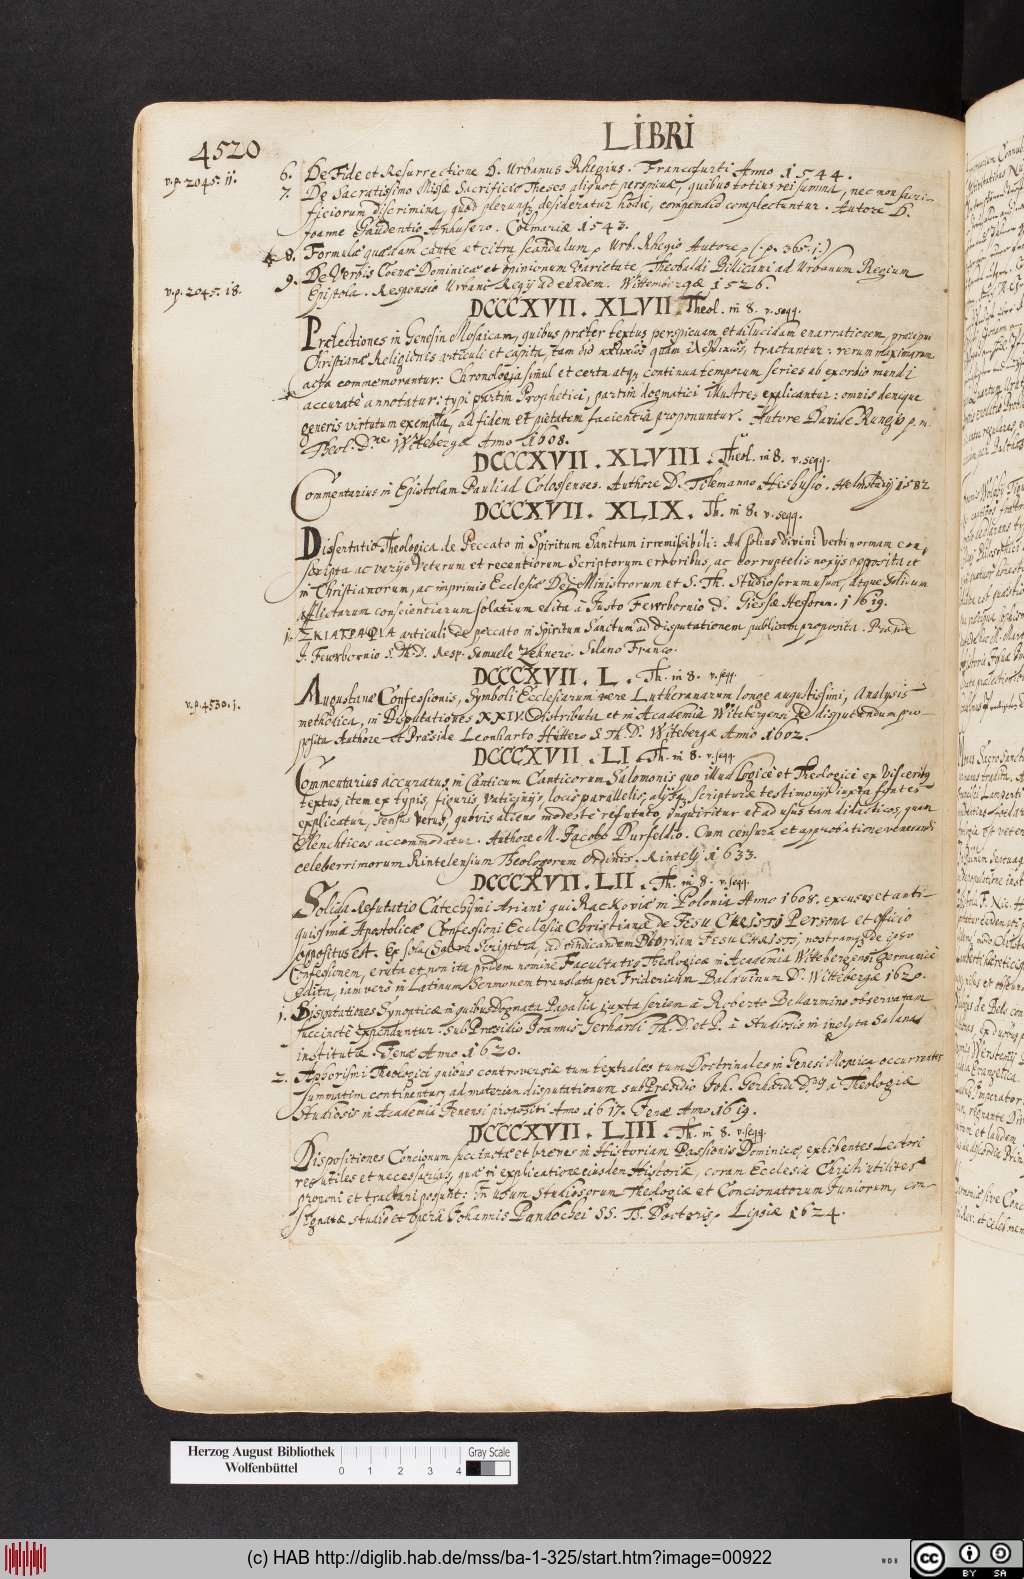 4520
LIBRI
6. De Fide et Resurrectione D. Urbanus Rhegius. Francofurti Anno 1544.
v. p. 2045. 11.
7. De Sacratissimo Missæ Sacrificio Theses aliquot perspicuæ, quibus totius rei summa, nec non sacri-
ficiorum discrimina, quod plerunq desideratur hodie, compendio complectuntur. Autore D.
Joanne Gaudentio Anhusero. Colmariæ 1543.
8. Formulæ quædam caute et citra scandalum, Urb. Rhegio Autore, (:p. 365.:)
9. De Verbis Coenæ Dominicæ et opinionum Varietate, Theobaldi Billicani ad Urbanum Regium
v. p. 2045. 18.
Epistola. Responsio Urbani Regij ad eundem. Wittembergæ 1526.
DCCCXVII. XLVII. Theol. in 8. v. seqq.
Prælectiones in Genesin Mosaicam, quibus præter textus perspicuam et dilucidam enarrationem, præcipui
Christianæ Religionis articuli et capita, tam quam tractantur: rerum maximarum
acta commemorantur: Chronologia simul et certa atq continua temporum series ab exordio mundi
accurate annotatur: typi partim Prophetici, partim dogmatici illustres explicantur: omnis denique
generis virtutum exempla, ad fidem et pietatem facientia proponuntur. Autore Davide Rungio p. m.
Theol. D.re Witebergæ Anno 1608.
DCCCXVII. XLVIII. Theol. in 8. v. seqq.
Commentarius in Epistolam Pauli ad Colossenses. Authore D. Tilemanno Heshusio. Helmstadij 1582
DCCCXVII. XLIX. Th. in 8. v. seqq.
Dissertatio Theologica de Peccato in Spiritum Sanctum irremissibili: Ad solius divini Verbi normam con-
scripta ac varijs Veterum et recentiorum Scriptorum erroribus, ac corruptelis noxijs opposita et
in Christianorum, ac inprimis Ecclesiæ Dei Ministrorum et S. Th. Studiosorum usum, atque solidum
afflictarum conscientiarum solatium edita à Justo Fewrbornio D. Giessæ Hessorum. 1619.
1. ΣΚΙΑΓΡΑΦΙΑ articuli de peccato in Spiritum Sanctum ad disputationem publicam proposita. Præside
J. Fewrbornio S. Th. D. Resp. Samuele Zehnero. Sulano Franco.
DCCCXVII. L. Th. in 8. v. seqq.
v. p. 4530. 1.
Augustanæ Confessionis, Symboli Ecclesiarum vere Lutheranarum longe augustissimi, Analysis
methodica, in Disputationes XXIV. distributa et in Academia Witebergensi ad disputandum pro-
posita Authore et Præside Leonharto Hüttero S. Th. D. Witebergæ Anno 1602.
DCCCXVII. LI. Th. in 8. v. seqq.
Commentarius accuratus, in Canticum Canticorum Salomonis quo illud Logicè et Theologicè ex visceribus
textus, item ex typis, figuris, vaticinijs, locis parallelis, alijsq scripturæ testimonijs juxta fontes
explicatur, sensus verus, quovis alieno modeste refutato, inquiritur et ad usus tam didacticos, quam
Elenchticos accommodatur. Authore M. Jacobo Durfeldio. Cum censura et approbatione venerandi
celeberrimorum Rintelensium Theologorum Ordinis. Rintelij 1633.
DCCCXVII. LII. Th. in 8. v. seqq.
Solida Refutatio Catechismi Ariani qui Rackoviæ in Polonia Anno 1608. excusus et anti-
quissimæ Apostolicæ Confessioni Ecclesiæ Christianæ de Jesu Christi Persona et Officio
oppositus est. Ex sola Sacra Scriptura, ad vindicandum Gloriam Jesu Christi, nostramq de ipso
Confessionem, eruta et non ita pridem nomine Facultatis Theologicæ in Academia Witebergensi Germanicè
edita, jam verò in Latinum Sermonem translata per Fridericum Balduinum D. Witebergæ 1620.
1. Disputationes Synopticæ in quibus Dogmata Papalia, juxta seriem à Roberto Bellarmino observatam
succinctè expenduntur. sub Præsidio Joannis Gerhardi Th. D. et P. à Studiosis in inclyta Salana
institutæ. Jenæ Anno 1620.
2. Aphorismi Theologici quibus controversiæ tum textuales tum Doctrinales in Genesi Mosaica occurrentes
summatim continentur, ad materiam disputationum sub Præsidio Joh. Gerhardi D. à Theologiæ
Studiosis in Academia Jenensi propositi Anno 1617. Jenæ Anno 1619.
DCCCXVII. LIII. Th. in 8. v. seqq.
Dispositiones Concionum succinctæ et breves in Historiam Passionis Dominicæ, exhibentes Lectori
res utiles et necessarias, quæ in explicatione ejusdem Historiæ, coram Ecclesia Christi utiliter
proponi et tractari possunt: In usum Studiosorum Theologiæ et Concionatorum Juniorum, con-
signatæ studio et operâ Johannis Pandochei SS. Th. Doctoris, Lipsiæ 1624.
Herzog August Bibliothek
Wolfenbüttel
0 1 2 3 4
Gray Scale
(c) HAB http://diglib.hab.de/mss/ba-1-325/start.htm?image=00922
WDB
cc BY SA